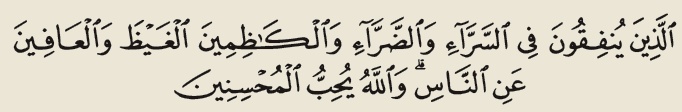 ٱلَّذِينَ يُنفِقُونَ فِى ٱلسَّرَّآءِ وَٱلضَّرَّآءِ وَٱلْكَـٰظِمِينَ ٱلْغَيْظَ وَٱلْعَافِينَ
عَنِ ٱلنَّاسِ ۗ وَٱللَّهُ يُحِبُّ ٱلْمُحْسِنِينَ